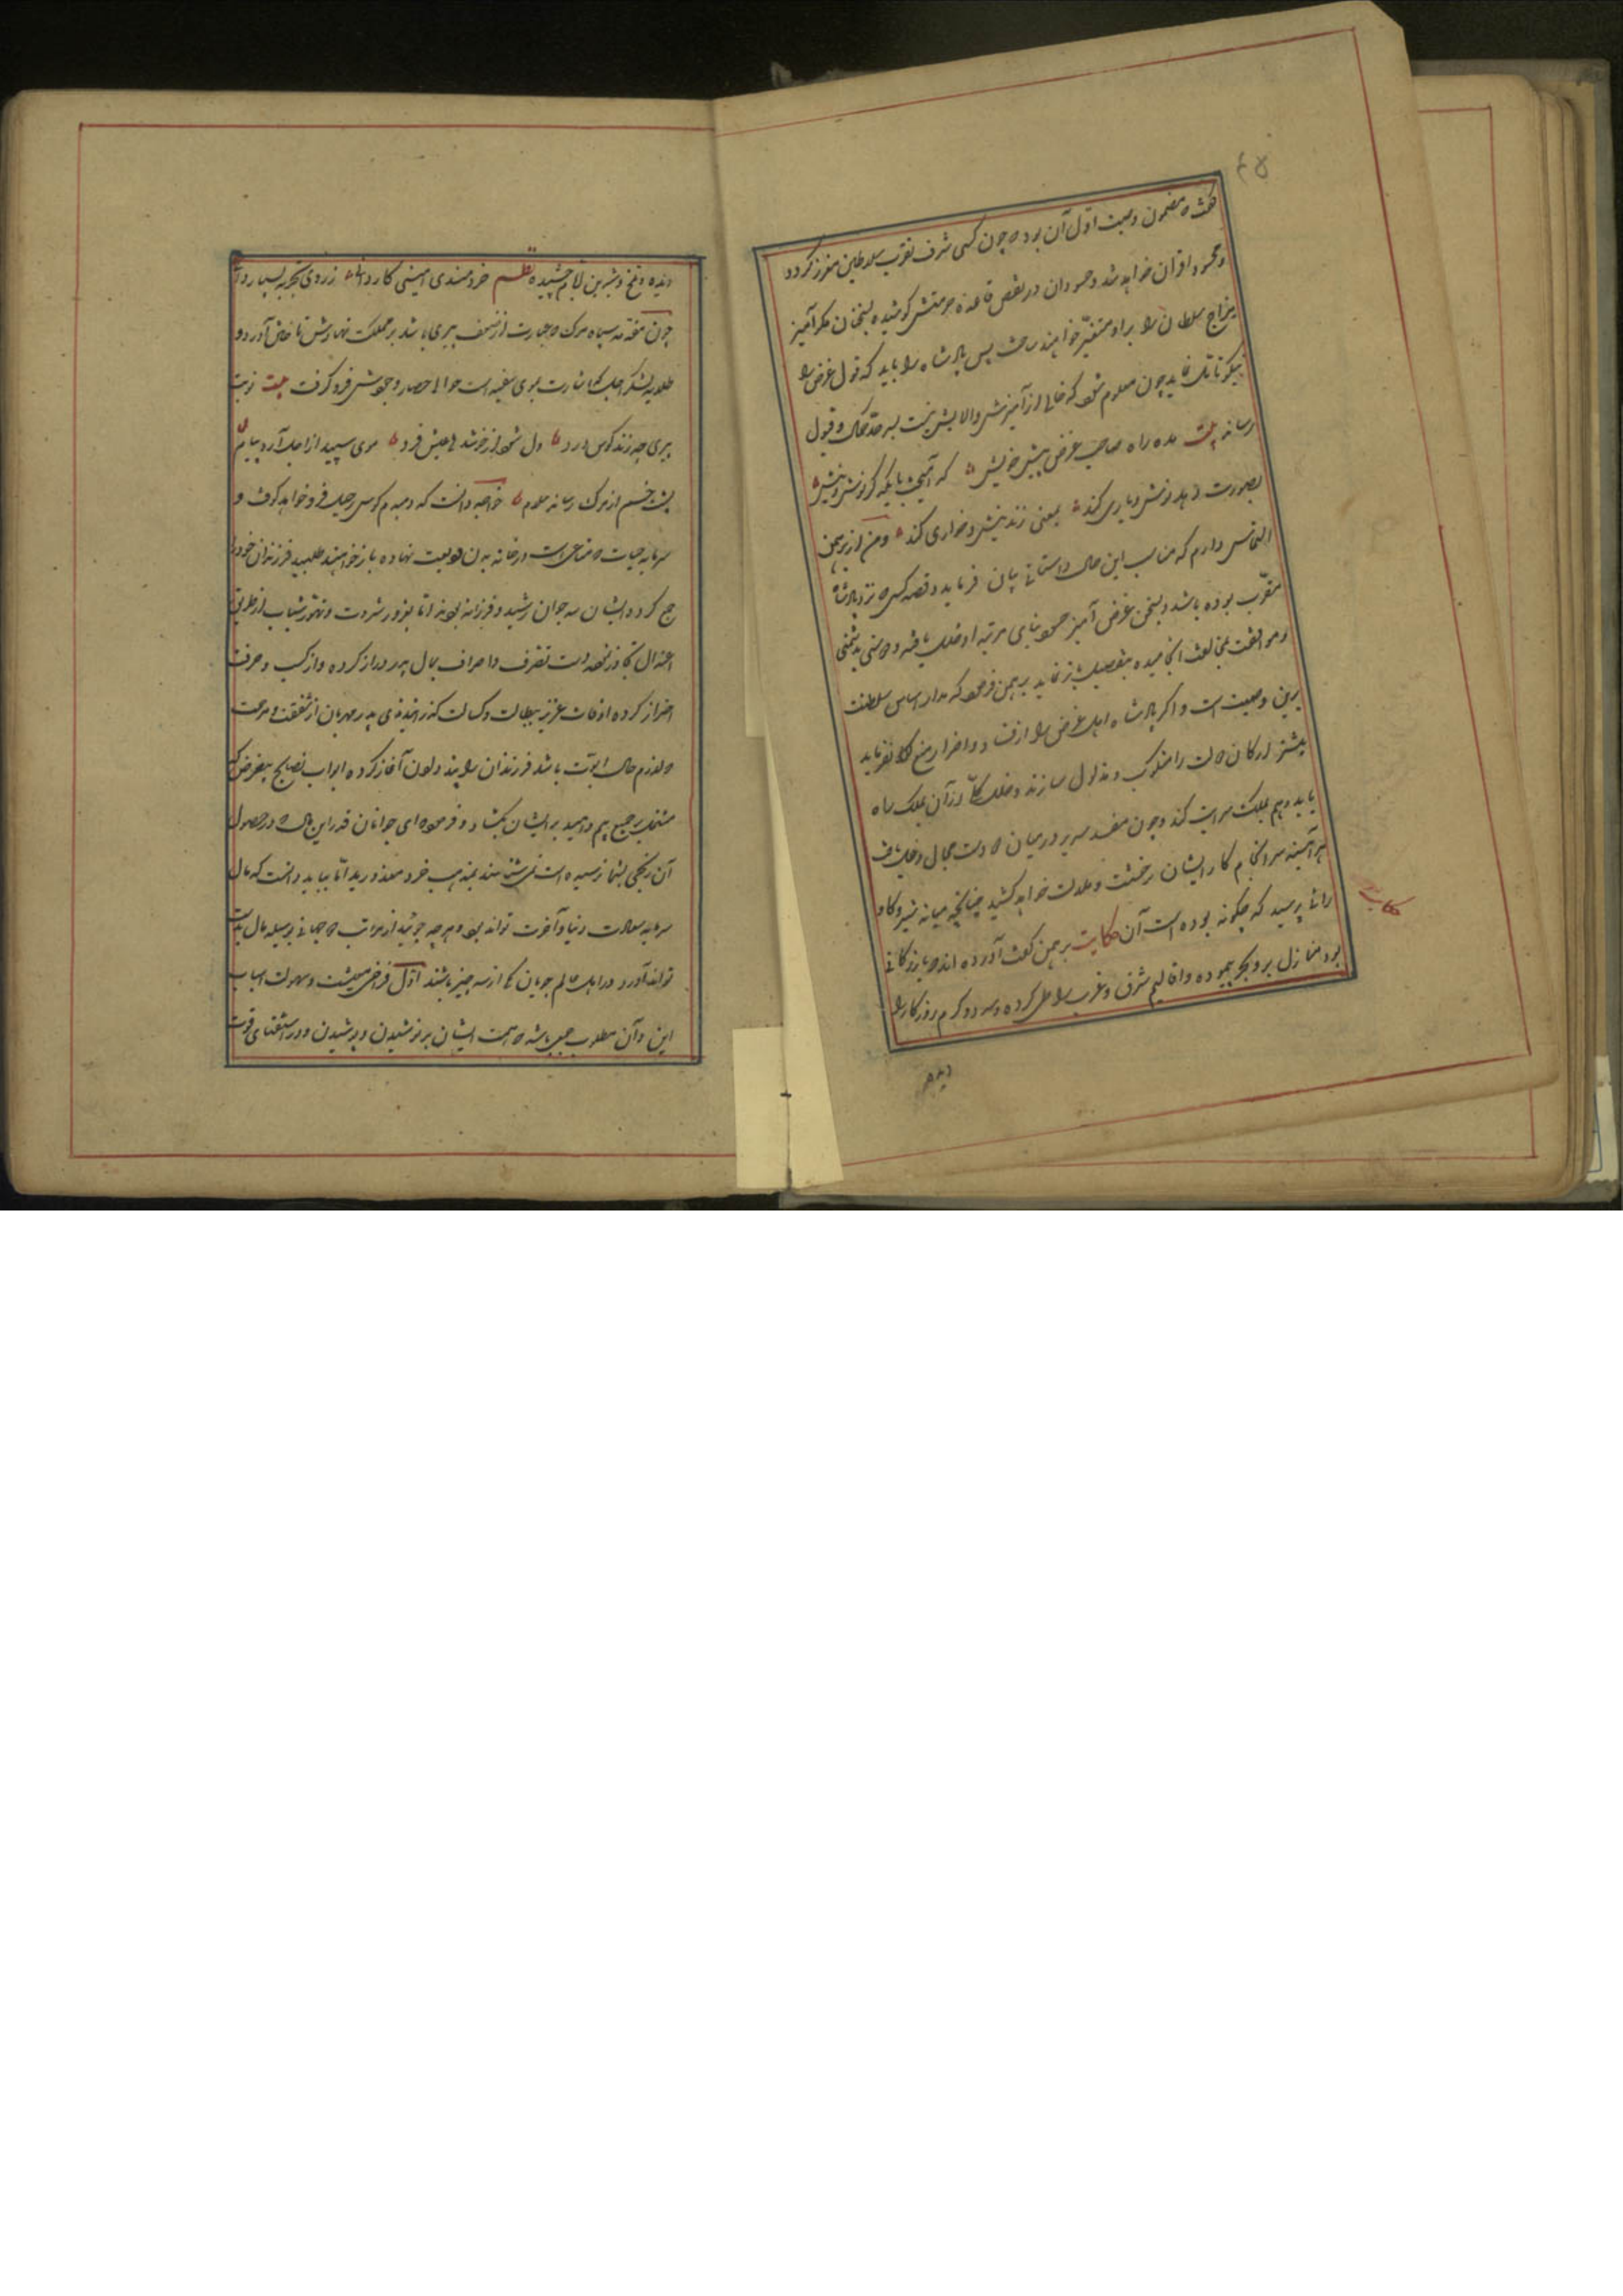 ۴۵
گفت که مضمون وصیت اول آن بود که چون کسی شرف تقرب سلاطین معزز گردد
و محسود اقران خواهد شد و حسودان در نقص قاعده حرمتش کوشیده بسخنان مکرآمیز
مزاج سلطان را بر او متغیر خواهند ساخت پس پادشاه را باید که قول غرض را
نیکو تأمل نماید چون معلوم شود که خالی از آمیزش و الایش نیست بسر حد قبول
رساند بیت مده راه صاحب غرض پیش خویش که آمیخت با یکدگر نوش و نیش
بصورت دهد نوش و یاری کند بمعنی زند نیش و خواری کند و من از برهمن
التماس دارم که مناسب این حال داستانی بیان فرماید و قصه کسی که نزد پادشاه
مقرب بوده باشد و بسخن غرض آمیز حسود بنای مرتبه او خلل یافته و دوستی بدشمنی
و موافقت بمخالفت انجامیده بتفصیل باز نماید برهمن فرمود که مدار اساس سلطنت
برین وصیت است و اگر پادشاه اهل غرض را از افساد و اضرار منع کلی نفرماید
بیشتر ارکان دولت را منکوب و مخذول سازند و خلل کلی از آن بملک راه
یابد و هم بملک سرایت کند و چون مفسد شریر در میان دو دوست مجال دخل یافت
هر آینه سرانجام کار ایشان بوحشت و ملالت خواهد کشید چنانچه میانه شیر و گاو
رای پرسید که چگونه بوده است آن حکایت برهمن گفت آورده اند که بازرگانی
بود منازل بر و بحر پیموده و اقالیم شرق و غرب را طی کرده و سرد و گرم روزگار را
حکایت
دیده
دیده و تلخ و شیرین ایام چشیده نظم خردمندی امینی کاردانی ز روی تجربه بسیار دانی
چون مقدمه سپاه مرگ که عبارت از ضعف پیری باشد بر مملکت نهادش تاختن آورد و
طلایه لشکر اجل که اشارت بموی سفید است حوالی حصار وجودش فرو گرفت بیت نوبت
پیری چو زند کوس درد دل شود از خوشدلی و عیش فرد موی سپید از اجل آرد پیام
پشت خم از مرگ رساند سلام خواجه دانست که دمبدم کوس رحیل فرو خواهد کوفت و
سرمایه حیات که متاعیست در خانه بدن ودیعت نهاده باز خواهند طلبید فرزندان خود را
جمع کرد و ایشان سه جوان رشید و فرزانه بودند اما بغرور ثروت و تهور شباب از طریق
اعتدال تجاوز نموده دست تصرف و اسراف بمال پدر دراز کرده و از کسب و حرفت
احتراز کرده اوقات عزیز ببطالت و کسالت گذرانیدندی پدر مهربان از شفقت و مرحمت
که لازم حال ابوت باشد فرزندان را پند دادن آغاز کرده ابواب نصایح بیغرض که
مشتمل بر جمیع بیم و امید بر ایشان بگشاد و فرمود ای جوانان قدر این مال که در حصول
آن رنجی بشما نرسیده است نمی شناسند بمذهب خرد معذورید اما بباید دانست که مال
سرمایه سعادت دنیا و آخرت تواند بود و هر چه جوئید از مراتب دو جهانی بوسیله مال بدست
تواند آورد و اهل عالم جویان یکی از سه چیز باشند اول فراخی معیشت و سهولت اسباب
این و آن مطلوب جمعی باشد که همت ایشان بر نوشیدن و پوشیدن و در استیفای قوت